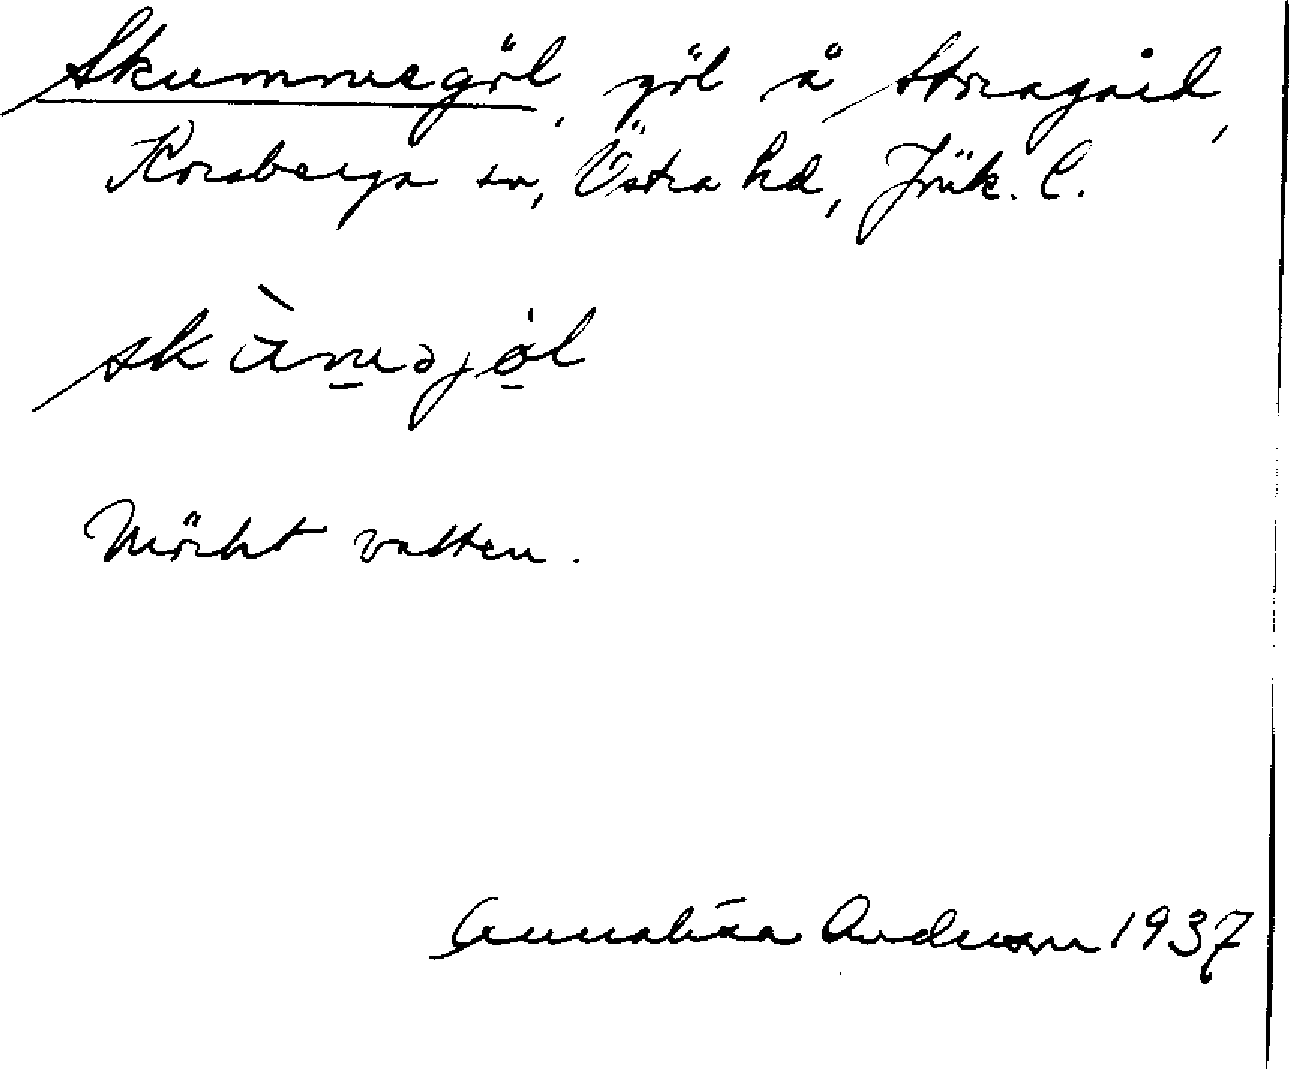 Skummegöl, göl å Storagård,
Korsberga sn, Östra hd, Jönk. l.
skàmǝjöl
Mörkt vatten.
Annalisa Anderson 1937